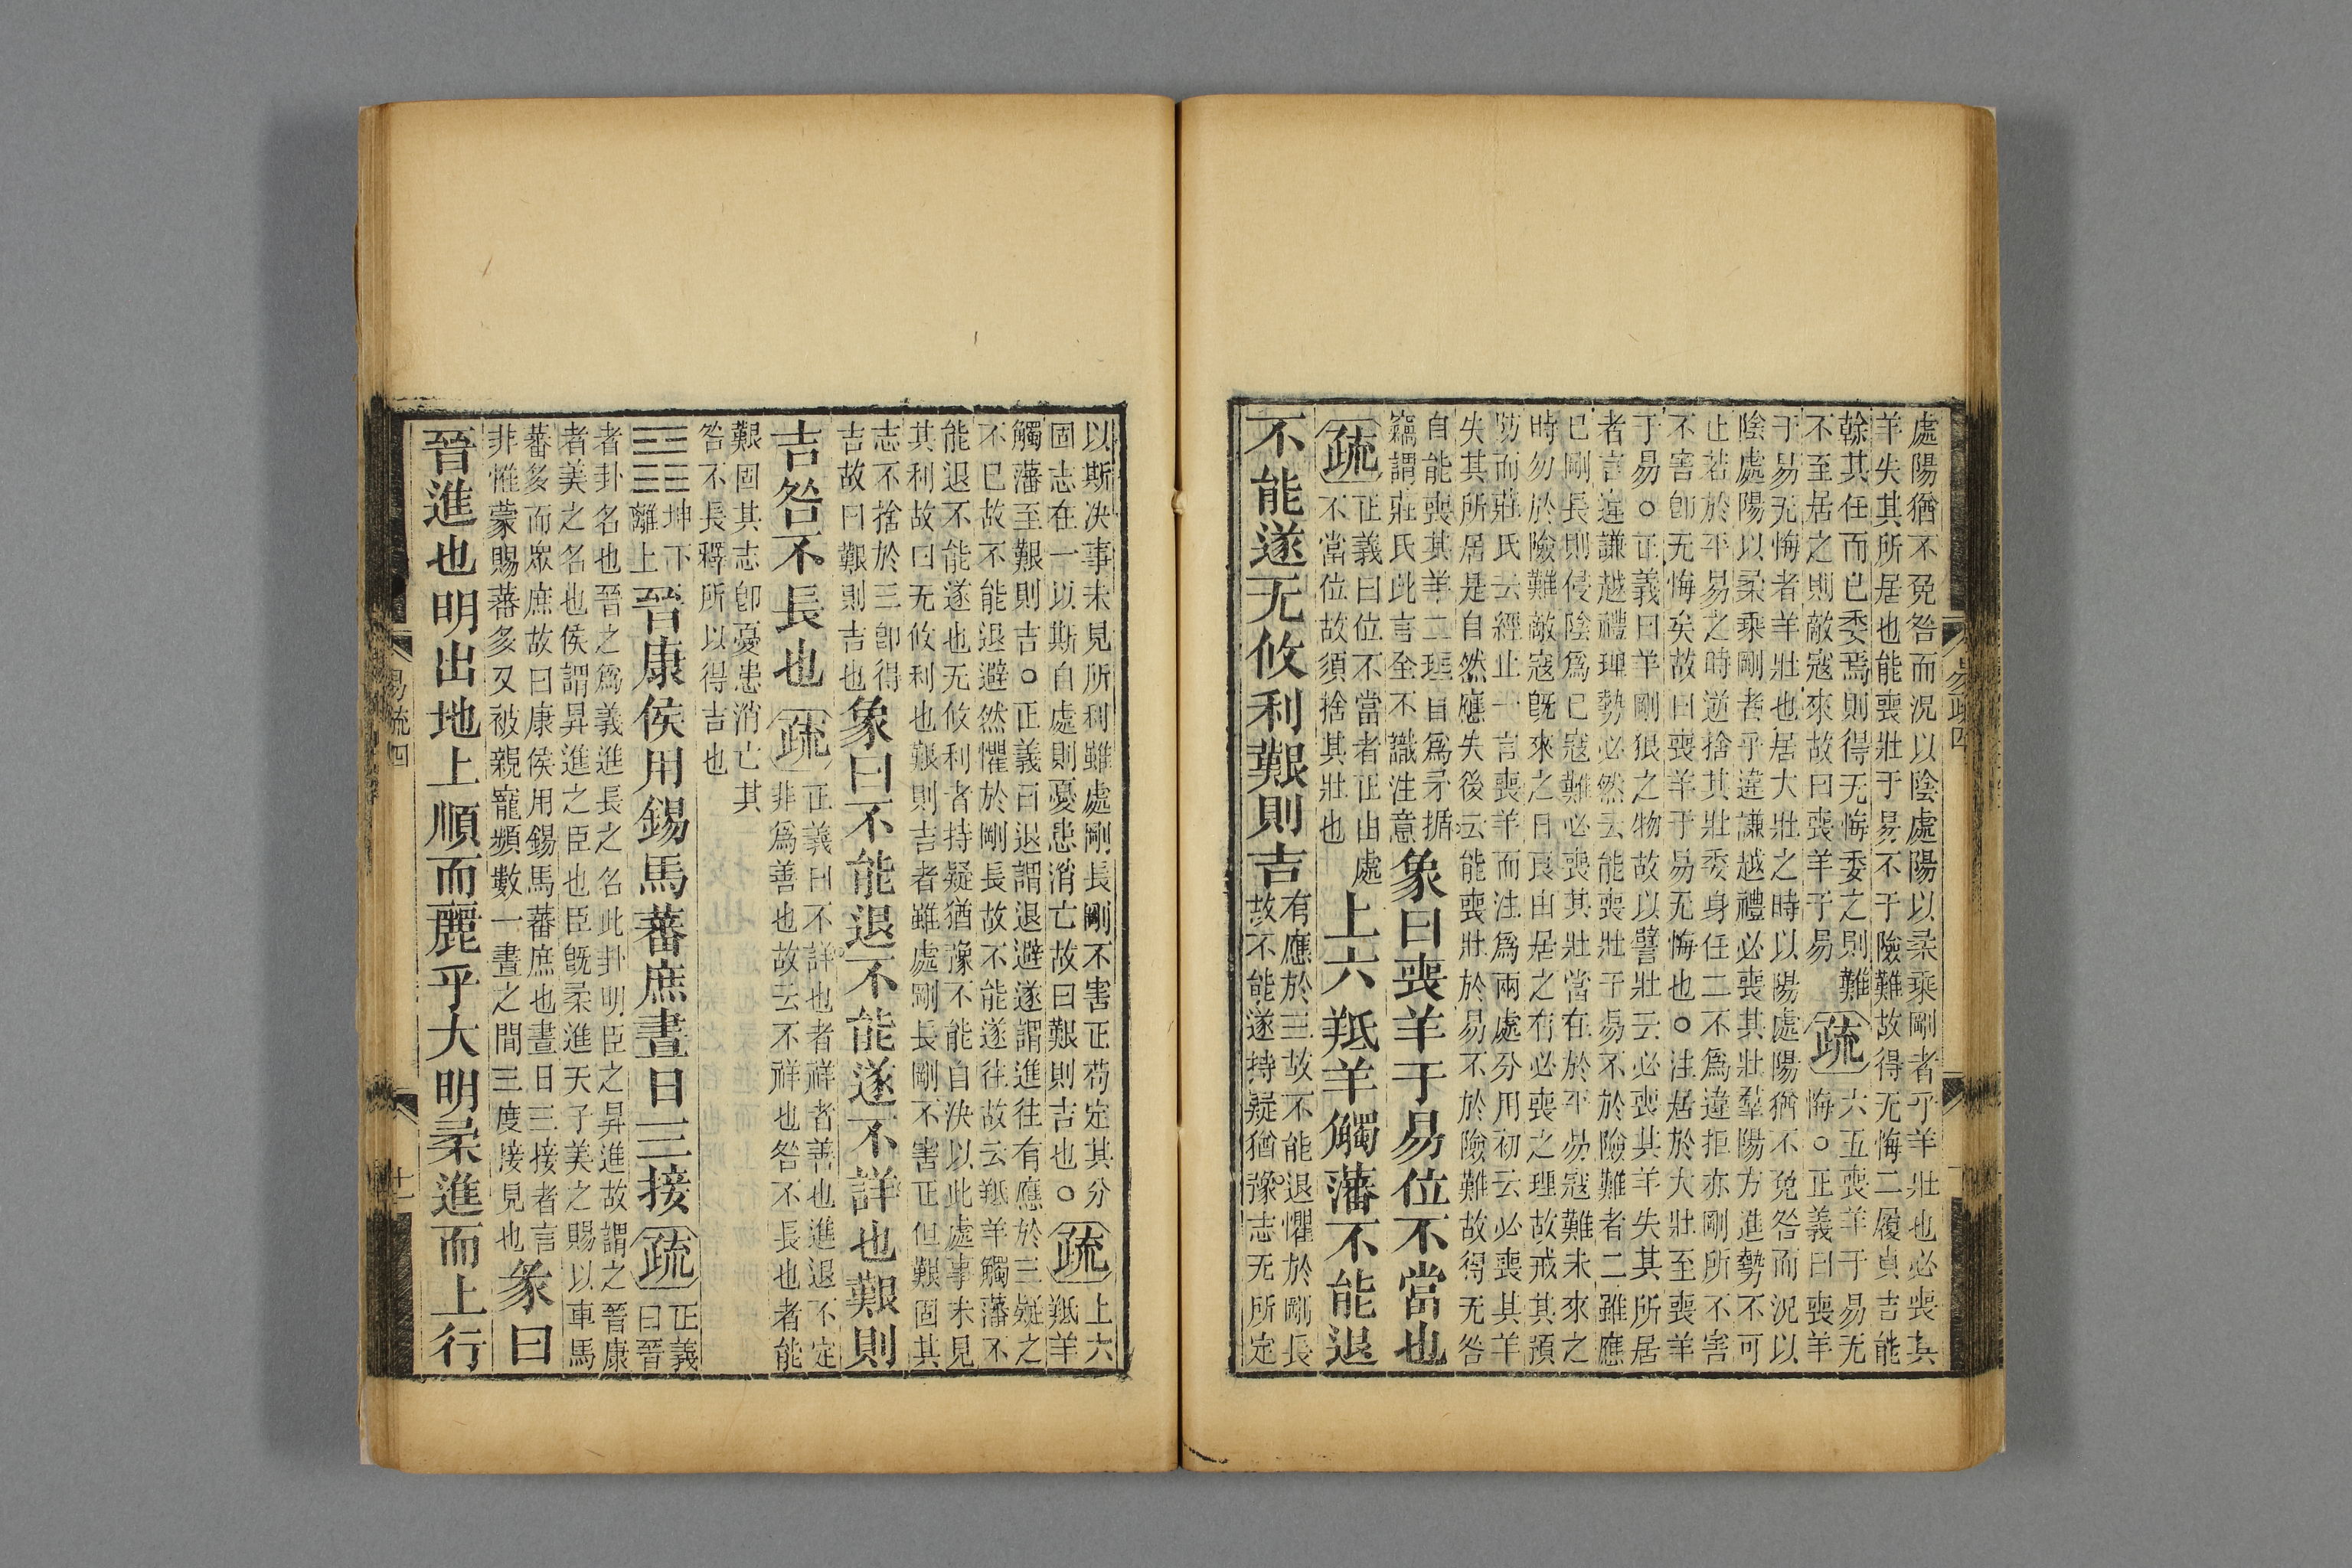 處陽猶不免咎而況以陰處陽以柔乘剛者乎羊壯也必喪其
羊失其所居也能喪壯于易不于險難故得无悔二履貞吉能
幹其任而已委焉則得无悔委之則難
不至居之則敵寇來故曰喪羊于易
疏
六五喪羊于易无
悔○正義曰喪羊
于易无悔者羊壯也居大壯之時以陽處陽猶不免咎而況以
陰處陽以柔乘剛者乎違謙越禮必喪其壯羣陽方進勢不可
止若於平易之時逆捨其壯委身任二不爲違拒亦剛所不害
不害卽无悔矣故曰喪羊于易无悔也○注居於大壯至喪羊
于易○正義曰羊剛狠之物故以譬壯云必喪其羊失其所居
者言違謙越禮理勢必然云能喪壯于易不於險難者二雖應
已剛長則侵陰爲已寇難必喪其壯當在於平易寇難未來之
時勿於險難敵寇旣來之日良由居之有必喪之理故戒其預
防而莊氏云經止一言喪羊而注爲兩處分用初云必喪其羊
失其所居是自然應失後云能喪壯於易不於險難故得无咎
自能喪其羊二理自爲矛楯
竊謂莊氏此言全不識注意
象曰喪羊于易位不當也
疏
正義曰位不當者正由處
不當位故須捨其壯也
上六羝羊觸藩不能退
不能遂无攸利艱則吉
有應於三故不能退懼於剛長
故不能遂持疑猶豫志无所定
以斯决事未見所利雖處剛長剛不害正苟定其分
固志在一以斯自處則憂患消亡故曰艱則吉也○
疏
上六
羝羊
觸藩至艱則吉○正義曰退謂退避遂謂進往有應於三疑之
不已故不能退避然懼於剛長故不能遂往故云羝羊觸藩不
能退不能遂也无攸利者持疑猶豫不能自決以此處事未見
其利故曰无攸利也艱則吉者雖處剛長剛不害正但艱固其
志不捨於三卽得
吉故曰艱則吉也
象曰不能退不能遂不詳也艱則
吉咎不長也
疏
正義曰不詳也者祥者善也進退不定
非爲善也故云不祥也咎不長也者能
艱固其志卽憂患消亡其
咎不長釋所以得吉也
坤下
離上
晉康侯用錫馬蕃庶晝日三接
疏
正義
曰晉
者卦名也晉之爲義進長之名此卦明臣之昇進故謂之晉康
者美之名也侯謂昇進之臣也臣旣柔進天子美之賜以車馬
蕃多而眾庶故曰康侯用錫馬蕃庶也晝日三接者言
非惟蒙賜蕃多又被親寵頻數一晝之間三度接見也
彖曰
晉進也明出地上順而麗乎大明柔進而上行
易疏四
十一